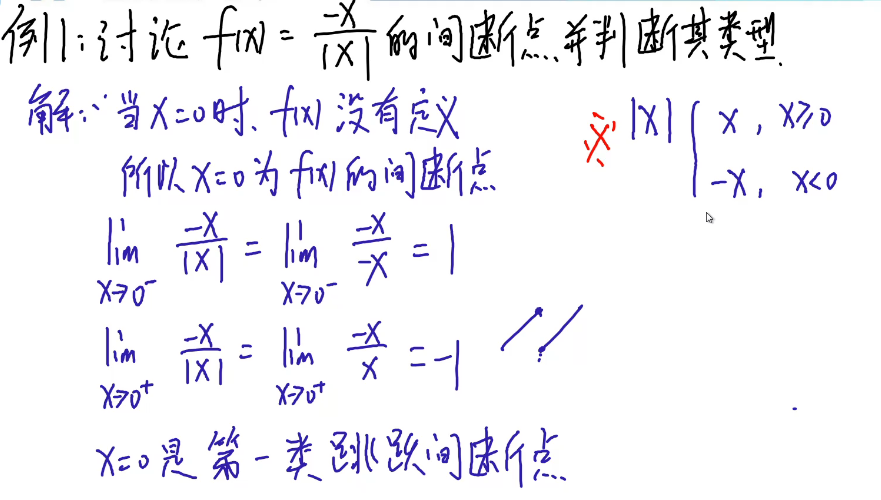 例1:讨论 f(x) = -x/|x| 的间断点并判断其类型.
解:∵当x=0时、f(x)没有定义
所以x=0为f(x)的间断点
※ |x| { x, x≥0
-x, x<0
lim x→0⁻ -x/|x| = lim x→0⁻ -x/-x = 1
lim x→0⁺ -x/|x| = lim x→0⁺ -x/x = -1
x=0是第一类跳跃间断点